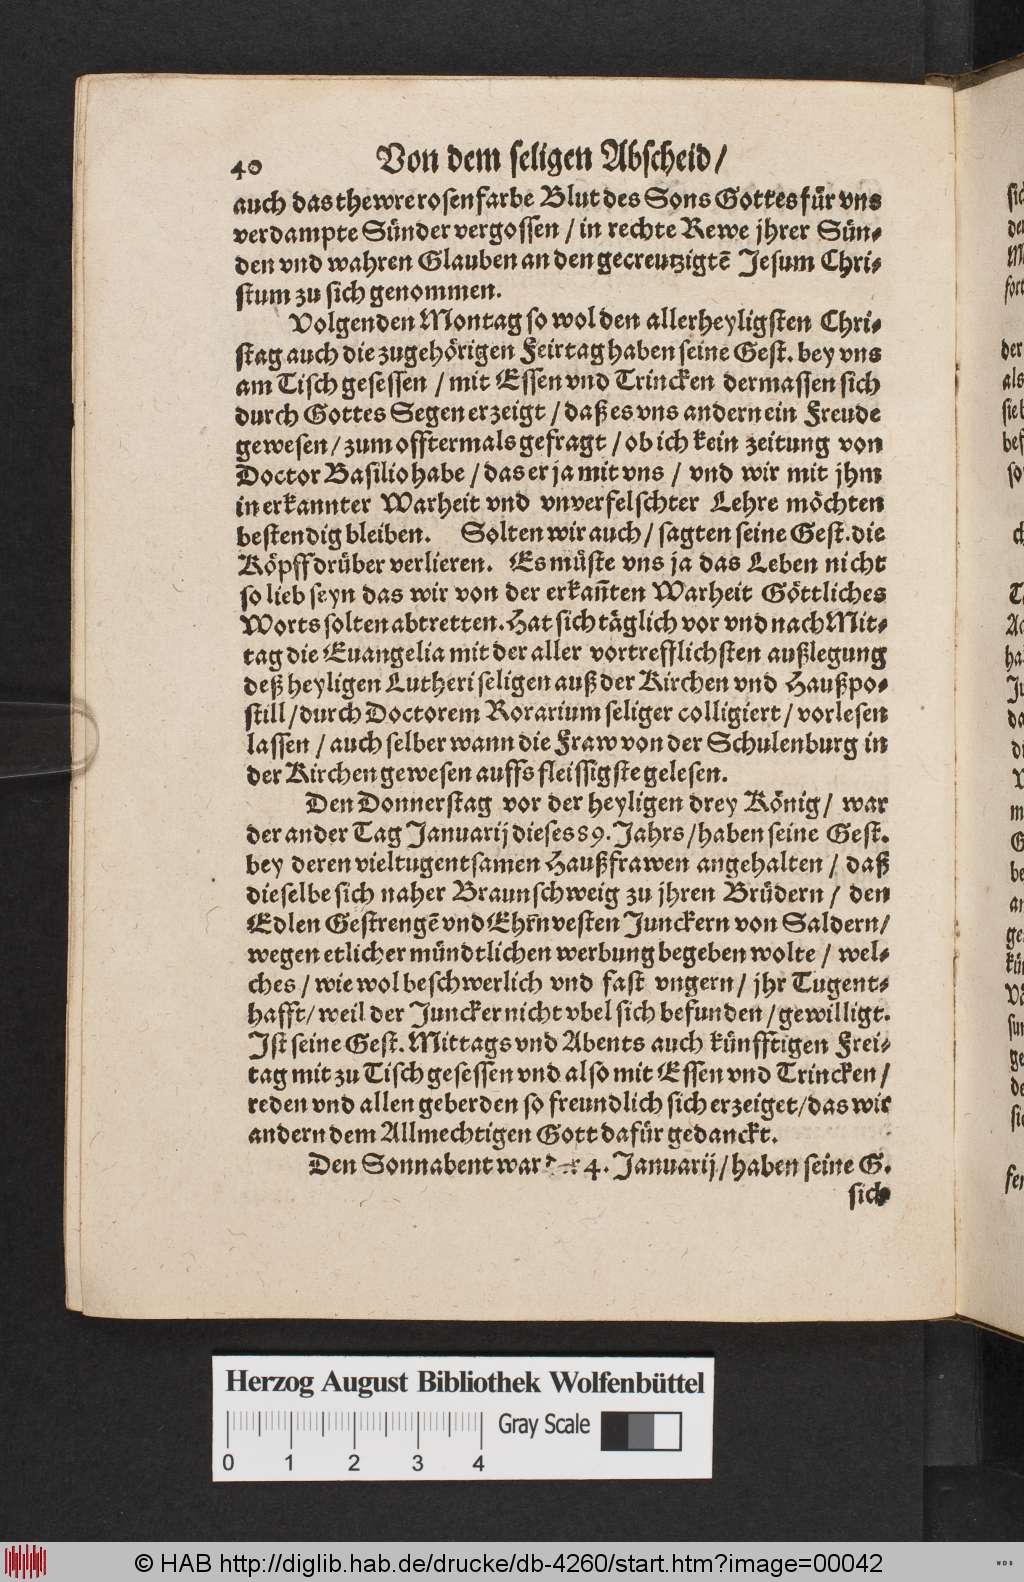 40 Von dem seligen Abscheid/
auch das thewre rosenfarbe Blut des Sons Gottes für vns
verdampte Sünder vergossen / in rechte Rewe jhrer Sün-
den vnd wahren Glauben an den gecreutzigtē Jesum Chri-
stum zu sich genommen.
Volgenden Montag so wol den allerheyligsten Chri-
stag auch die zugehörigen Feirtag haben seine Gest. bey vns
am Tisch gesessen / mit Essen vnd Trincken dermassen sich
durch Gottes Segen erzeigt / daß es vns andern ein Freude
gewesen / zum offtermals gefragt / ob ich kein zeitung von
Doctor Basilio habe / das er ja mit vns / vnd wir mit jhm
in erkannter Warheit vnd vnverfelschter Lehre möchten
bestendig bleiben. Solten wir auch / sagten seine Gest. die
Köpff drüber verlieren. Es müste vns ja das Leben nicht
so lieb seyn das wir von der erkañten Warheit Göttliches
Worts solten abtretten. Hat sich täglich vor vnd nach Mit-
tag die Euangelia mit der aller vortrefflichsten außlegung
deß heyligen Lutheri seligen auß der Kirchen vnd Haußpo-
still / durch Doctorem Rorarium seliger colligiert / vorlesen
lassen / auch selber wann die Fraw von der Schulenburg in
der Kirchen gewesen auffs fleissigste gelesen.
Den Donnerstag vor der heyligen drey König / war
der ander Tag Januarij dieses 89. Jahrs / haben seine Gest.
bey deren vieltugentsamen Haußfrawen angehalten / daß
dieselbe sich naher Braunschweig zu jhren Brüdern / den
Edlen Gestrengē vnd Ehrñvesten Junckern von Saldern/
wegen etlicher mündtlichen werbung begeben wolte / wel-
ches / wie wol beschwerlich vnd fast vngern / jhr Tugent-
hafft / weil der Juncker nicht vbel sich befunden / gewilligt.
Ist seine Gest. Mittags vnd Abents auch künfftigen Frei-
tag mit zu Tisch gesessen vnd also mit Essen vnd Trincken /
reden vnd allen geberden so freundlich sich erzeiget / das wir
andern dem Allmechtigen Gott dafür gedanckt.
Den Sonnabent war der 4. Januarij / haben seine G.
sich
Herzog August Bibliothek Wolfenbüttel
Gray Scale
0 1 2 3 4
© HAB http://diglib.hab.de/drucke/db-4260/start.htm?image=00042